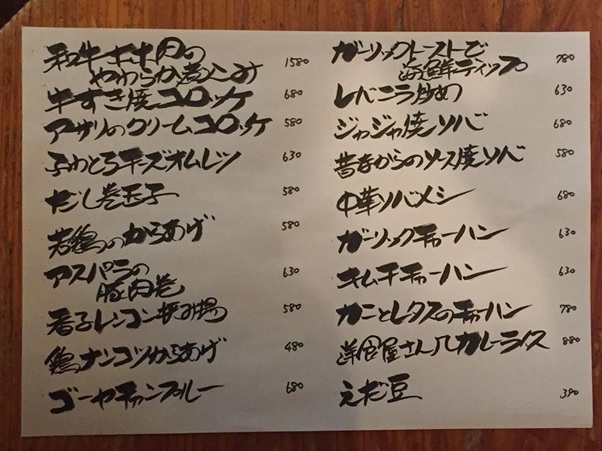 和牛ホホ肉の
やわらか煮こみ 1580
牛すき焼コロッケ 680
アサリのクリームコロッケ 580
ふわとろチーズオムレツ 630
だし巻玉子 580
若鶏のからあげ 580
アスパラの
豚肉巻 630
レンコン挟み揚 580
鶏ナンコツからあげ 480
ゴーヤチャンプルー 680
ガーリックトーストで
海鮮ディップ 780
レバニラ炒め 630
ジャジャ焼ソバ 680
昔ながらのソース焼ソバ 580
中華ソバメシ 680
ガーリックチャーハン 630
キムチチャーハン 630
カニとレタスのチャーハン 780
洋食屋さんのカレーライス 880
えだ豆 390